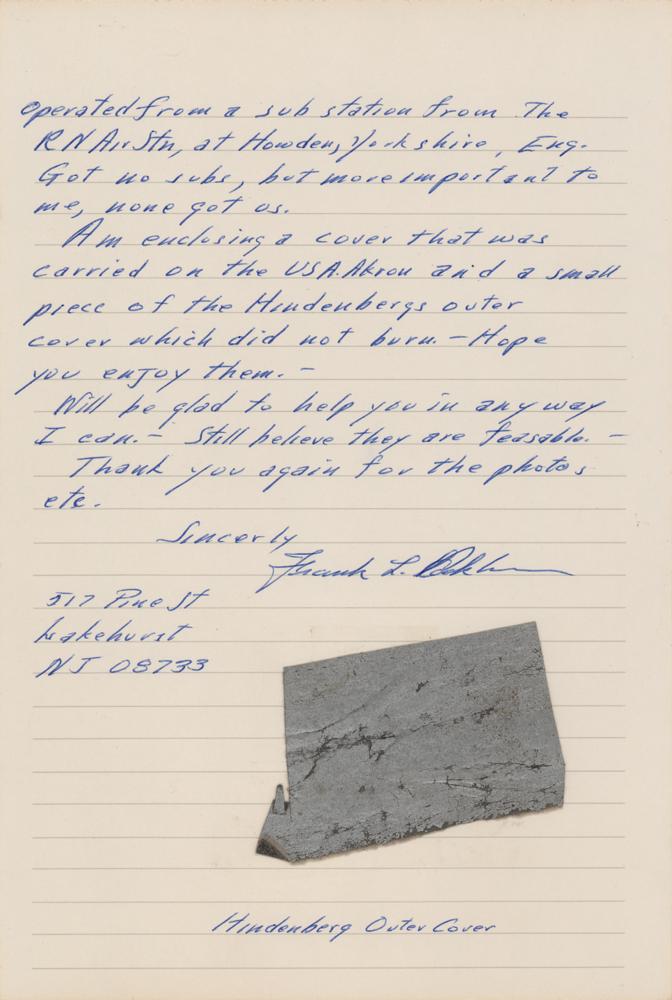 operated from a sub station from The
RN Air Stn, at Howden, Yorkshire, Eng.
Got no subs, but more important to
me, none got us.
Am enclosing a cover that was
carried on the USA. Akron and a small
piece of the Hindenbergs outer
cover which did not burn. - Hope
you enjoy them. -
Will be glad to help you in any way
I can. - Still believe they are feasable. -
Thank you again for the photos
etc.
Sincerly
Frank L.
517 Pine St
Lakehurst
NJ 08733
Hindenberg Outer Cover